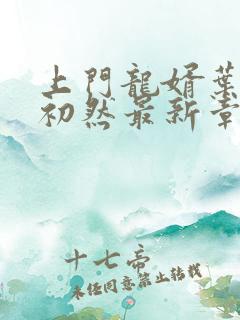 上門龍婿葉
初然最新章
十七帝
未经同意禁止转载